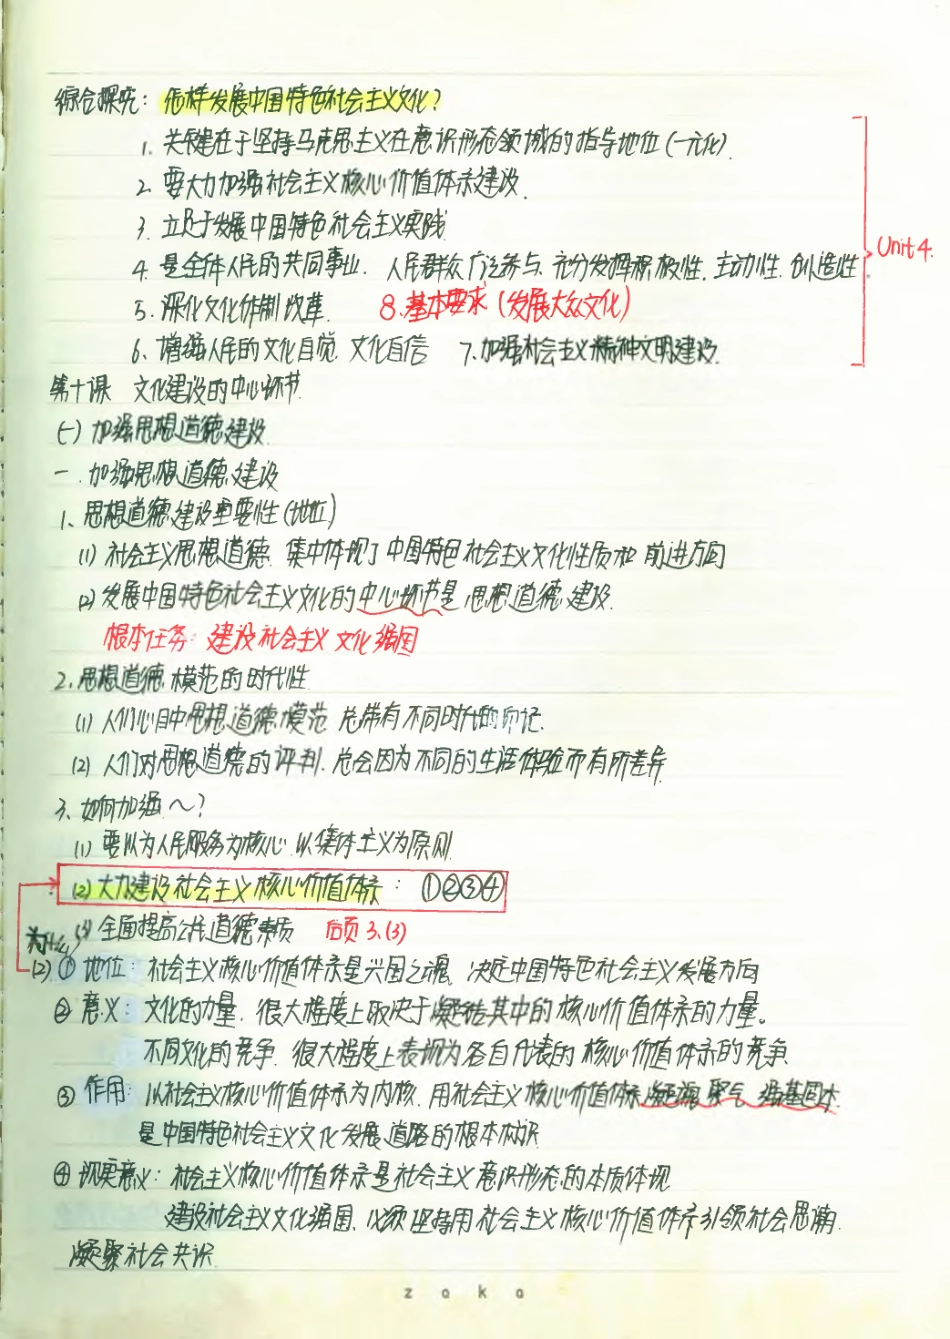 综合探究：怎样发展中国特色社会主义文化？
1. 关键在于坚持马克思主义在意识形态领域的指导地位（一元化）.
2. 要大力加强社会主义核心价值体系建设.
3. 立足于发展中国特色社会主义实践
4. 是全体人民的共同事业. 人民群众广泛参与、充分发挥积极性. 主动性. 创造性.
Unit 4.
5. 深化文化体制改革. 8.基本要求（发展大众文化）
6、增强人民的文化自觉. 文化自信 7.加强社会主义精神文明建设.
第十课 文化建设的中心环节.
(一) 加强思想道德建设.
一. 加强思想道德建设
1、思想道德建设重要性(地位)
(1) 社会主义思想道德. 集中体现了中国特色社会主义文化性质和前进方向
(2) 发展中国特色社会主义文化的中心环节是思想道德建设.
根本任务：建设社会主义文化强国
2.思想道德模范的时代性.
(1) 人们心目中思想道德模范 总带有不同时代的印记.
(2) 人们对思想道德的评判. 总会因为不同的生活体验而有所差异
3、如何加强～？
(1) 要以为人民服务为核心. 以集体主义为原则
(2) 大力建设社会主义核心价值体系：①②③④
(3) 全面提高公民道德素质 后页 3.(3)
为什么
(2) ① 地位：社会主义核心价值体系是兴国之魂、决定中国特色社会主义发展方向
② 意义：文化的力量. 很大程度上取决于凝结其中的核心价值体系的力量。
不同文化的竞争. 很大程度上表现为各自代表的核心价值体系的竞争
③ 作用：以社会主义核心价值体系为内核. 用社会主义核心价值体系凝魂聚气、强基固本.
是中国特色社会主义文化发展道路的根本标识
④ 现实意义：社会主义核心价值体系是社会主义意识形态的本质体现.
建设社会主义文化强国. 必须坚持用社会主义核心价值体系引领社会思潮.
凝聚社会共识.
zaka